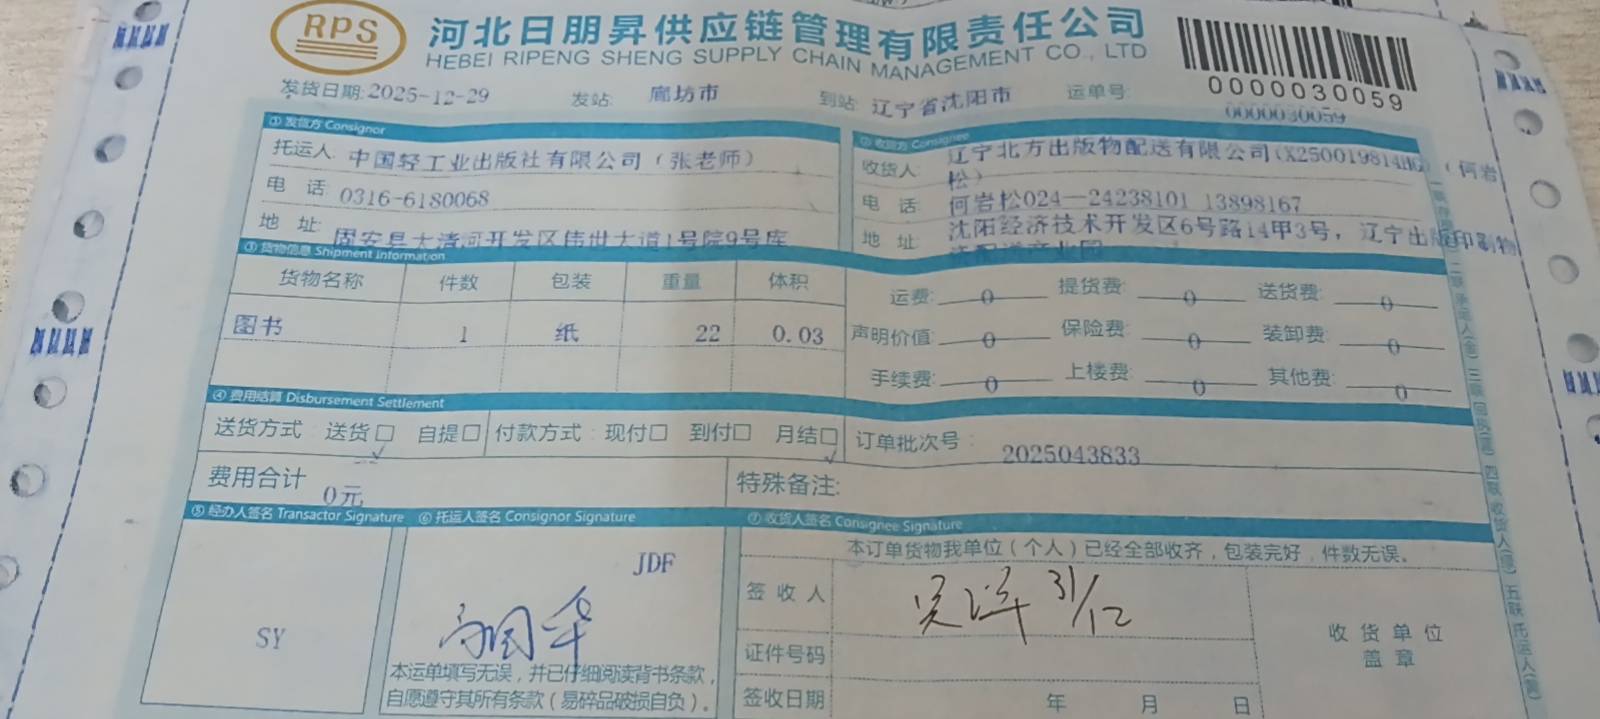 RPS 河北日朋昇供应链管理有限责任公司
HEBEI RIPENG SHENG SUPPLY CHAIN MANAGEMENT CO., LTD
0000030059
发货日期:2025-12-29 发站: 廊坊市 到站: 辽宁省沈阳市 运单号: 0000030059
① 发货方 Consignor ② 收货方 Consignee
托运人: 中国轻工业出版社有限公司（张老师） 收货人: 辽宁北方出版物配送有限公司(X250019814HG)（何岩
松）
电 话 0316-6180068 电 话: 何岩松024—24238101 13898167
地 址: 固安县大清河开发区伟世大道1号院9号库 地 址: 沈阳经济技术开发区6号路14甲3号，辽宁出版印刷物
流配送产业园
③ 货物信息 Shipment Information
货物名称 件数 包装 重量 体积 运费: 0 提货费: 0 送货费: 0
图书 1 纸 22 0.03 声明价值: 0 保险费: 0 装卸费: 0
手续费: 0 上楼费: 0 其他费: 0
④ 费用结算 Disbursement Settlement
送货方式: 送货□ ✓ 自提□ 付款方式: 现付□ 到付□ 月结□ ✓ 订单批次号: 2025043833
费用合计 0元 特殊备注:
⑤ 经办人签名 Transactor Signature ⑥ 托运人签名 Consignor Signature ⑦ 收货人签名 Consignee Signature
本订单货物我单位（个人）已经全部收齐，包装完好，件数无误。
JDF
签收人 31/12
SY
收货单位
盖章
证件号码
本运单填写无误，并已仔细阅读背书条款，
自愿遵守其所有条款（易碎品破损自负）。
签收日期 年 月 日